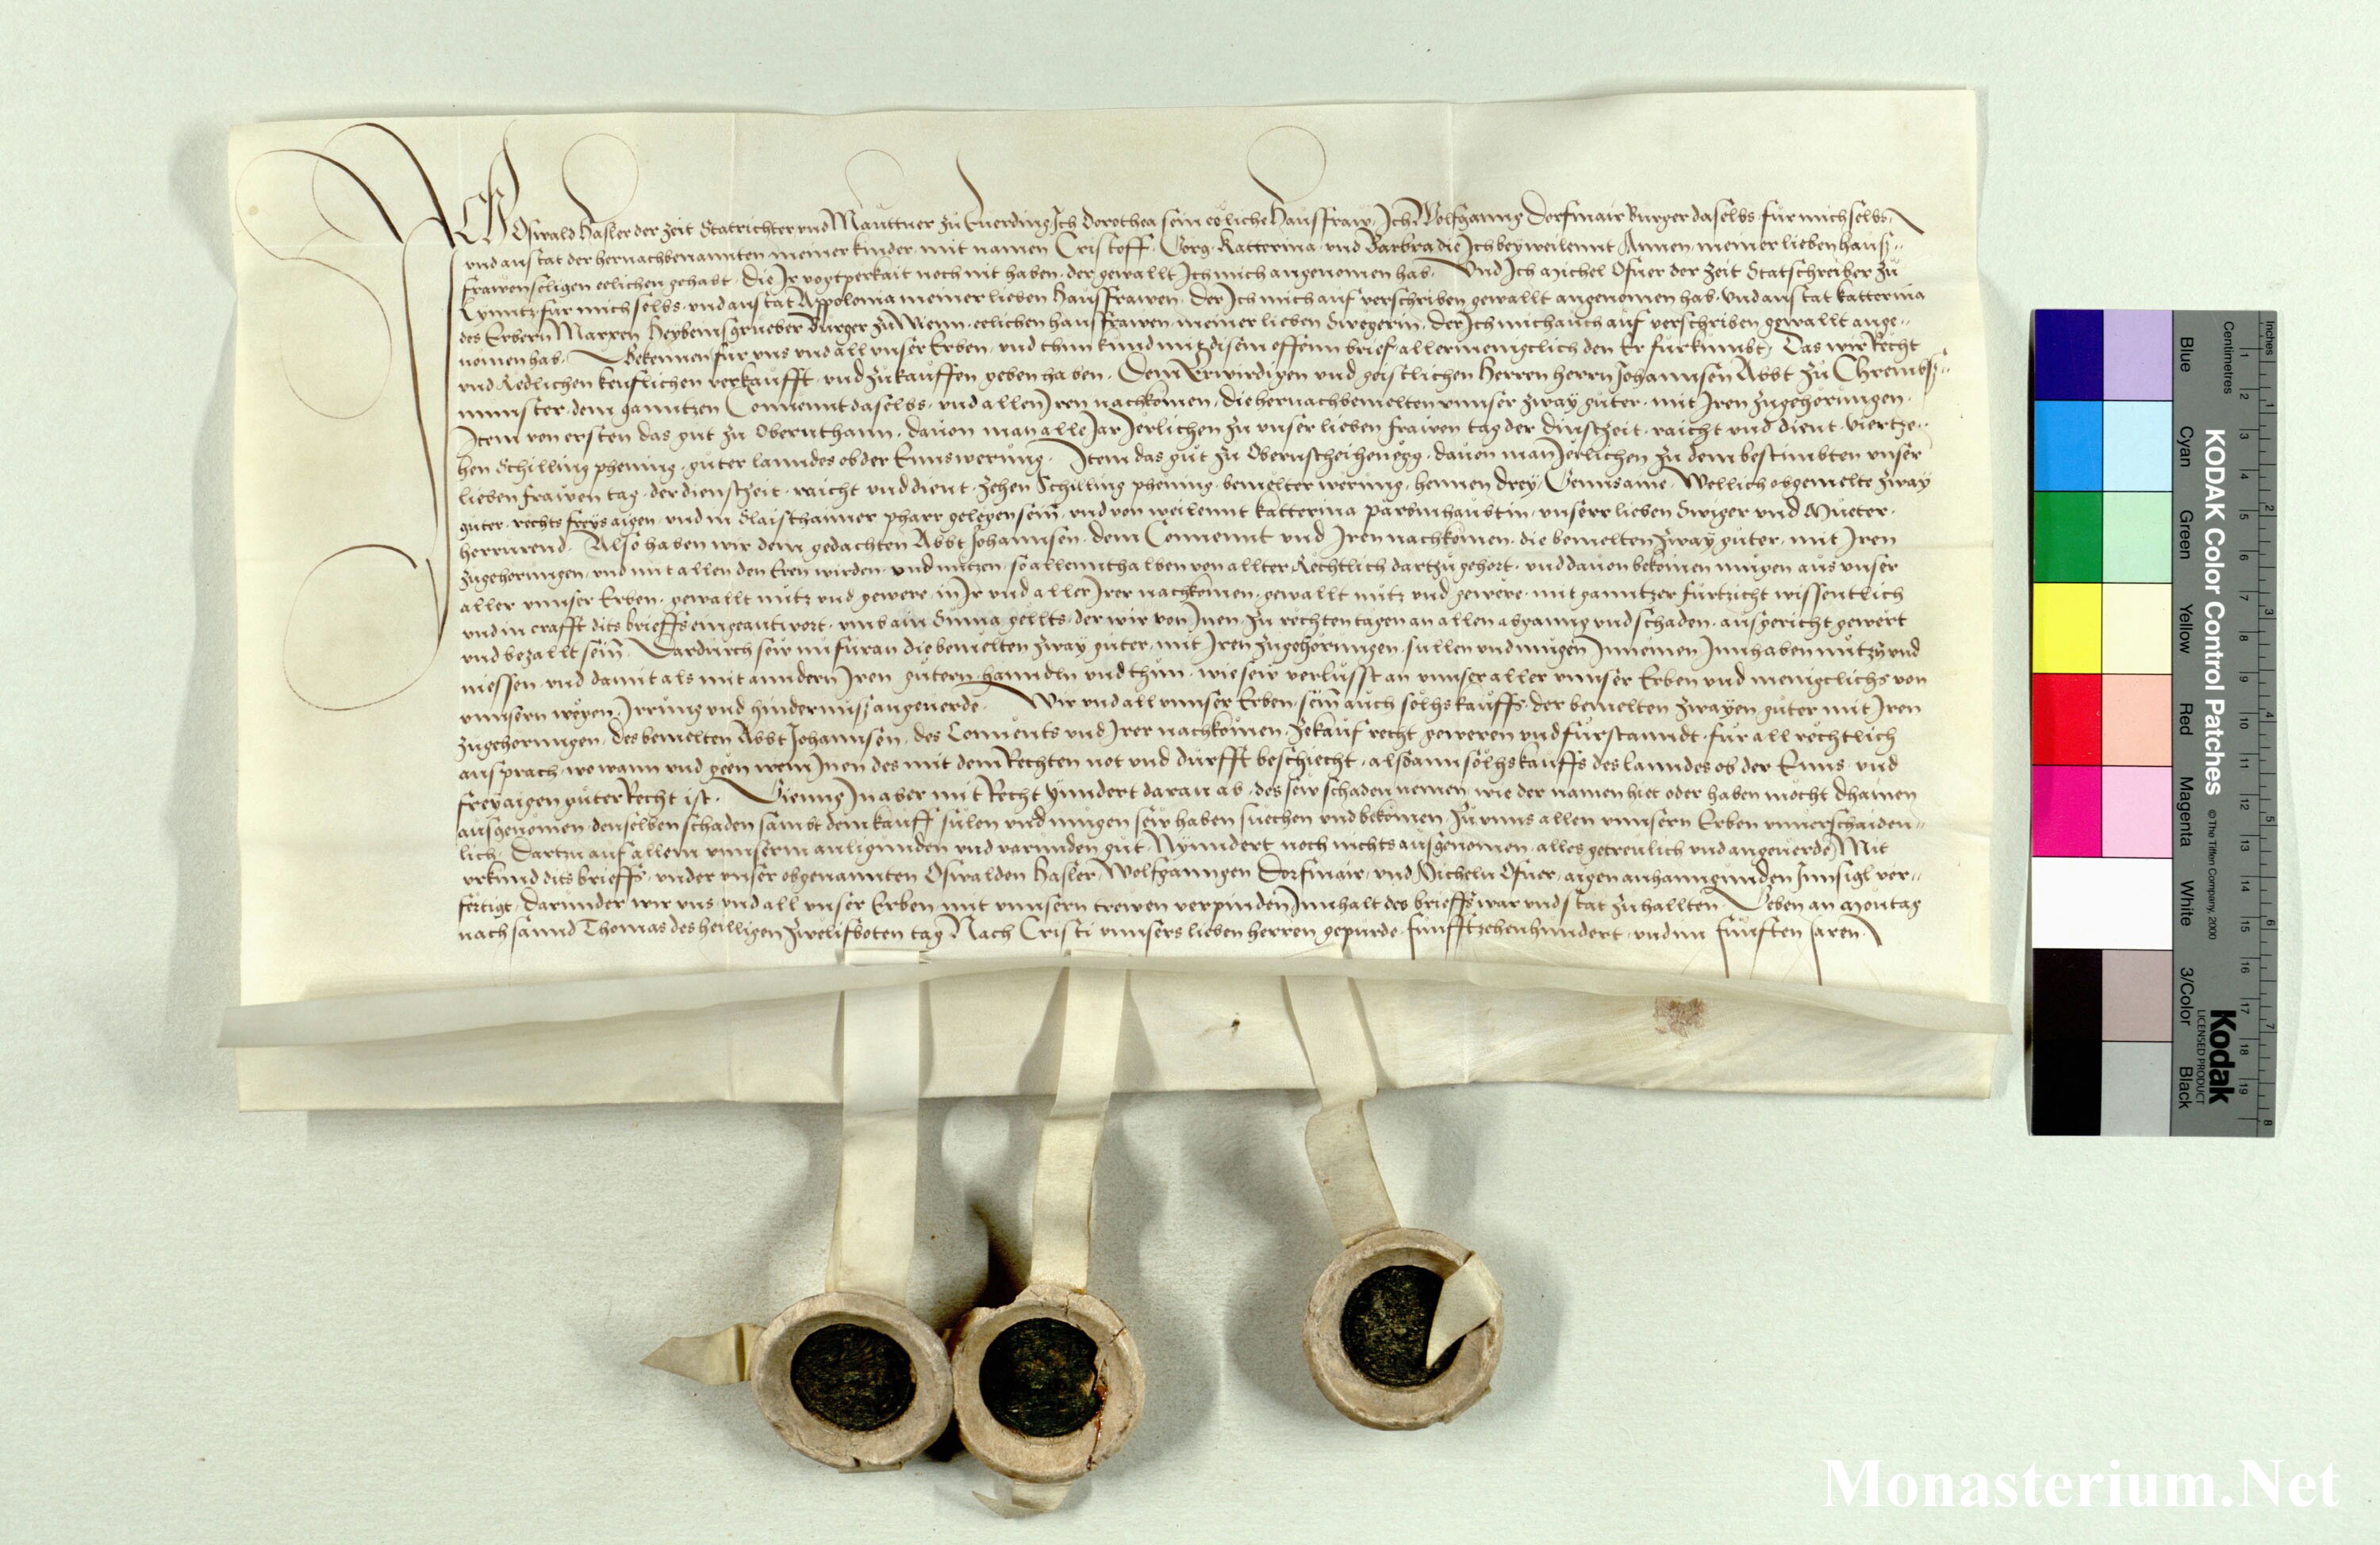 Ich Oswald Hasler der zeit Statrichter vnd Mauttner zu Euerding Ich Dorothea sein eeliche Hausfraw, Ich Wolfganng Dorfmair Burger daselbs fur mich selbs,
vnd anstat der hernachbenannten meiner kinder mit namen Cristoff Georg Katterina vnd Barbra die Ich bey weilennt Annen meiner lieben hauß-
frawen seligen eelichen gehabt die Ir vogtperkait noch nit haben der gewallt Ich mich angenomen hab. Vnd Ich Michel Ofner der zeit Statschreiber zu
Lynntz fur mich selbs vnd anstat Appolonia meiner lieben Hausfrawen der Ich mich auf verschriben gewallt angenomen hab vnd anstat katterina
des Erbern Marxen Heybeinsgrueber Burger zu Wienn eelichen hausfrawen meiner lieben Swegerin der Ich mich auch auf verschriben gewallt ange-
nomen hab. Bekennen fur vns vnd all vnser Erben vnd thun kund mit disem offenn brief allermenigclich den Er furkumbt, Das wir Recht
vnd Redlichen keuflichen verkaufft vnd zukauffen geben haben. Dem Erwirdigen vnd geistlichen Herren herrn Johannsen Abbt zu Chrembß-
munster dem ganntzen Conuennt daselbs vnd allen Iren nachkomen die hernachbemelten vnnser zway guter mit Iren zugehorungen.
Item von ersten das gut zu Obernthann dauon man alle Jar Jerlichen zu vnser lieben frawen tag der dinstzeit raicht vnd dient viertze-
hen Schilling phening guter lanndes ob der Enns werung. Item das gut zu Obernscheihenegg dauon man Jerlichen zu dem bestimbten vnser
lieben frawen tag der dienstzeit raicht vnd dient zehen Schilling phening bemelter werung hennen drey Wellich obgemelte zway
guter rechts freys aigen vnd in Slaisthaimer pharr gelegen sein vnd von weilennt katterina vnserr lieben Swiger vnd Mueter
herrurend. Also haben wir dem gedachten Abbt Johannsen dem Conuennt vnd Iren nachkomen die bemelten zway guter mit Iren
zugehorungen vnd mit allen den Eren wirden vnd nutzen so allennthalben von allter Rechtlich dartzu gehort vnd dauon bekomen mugen aus vnser
aller vnnser Erben gewallt nutz vnd gewere in Ir vnd aller Irer nachkomen gewallt nutz vnd gewere mit ganntzer furtzicht wissentlich
vnd in crafft dits brieffs eingeantwort vmb ain Suma gellts der wir von Inen zu rechten tagen an allen abganng vnd schaden ausgericht gewert
vnd bezallt sein. Dardurch sew nu furan die bemelten zway guter mit Iren zugehorungen sullen vnd mugen Innemen Innhaben nutzn vnd
niessen vnd damit als mit anndern Iren gutern hanndln vnd thun wie sew verlusst an vnnser aller vnnser Erben vnd menigclichs von
vnnsern wegen Irrung vnd hindernuß angeuerde. Wir vnd all vnnser Erben sein auch solhs kauffs der bemelten zwayen guter mit Iren
zugehorungen des bemelten Abbt Johannsen des Conuents vnd Irer nachkomen zekauf recht geweren vnd furstanndt fur all rechtlich
ansprach wo wann vnd geen wem Inen des mit dem Rechten not vnd durfft beschiecht als dann solhs kauffs des lanndes ob der Enns vnd
freyaigen guter Recht ist. Gienng In aber mit Recht ynndert daran ab des sew schaden nemen wie der namen hiet oder haben mocht dhainen
ausgenomen denselben schaden sambt dem kauff sulen vnd mugen sew haben suechen vnd bekomen zu vnns allen vnnsern Erben vnnerschaiden-
lich. Dartzu auf allem vnnserm anligunden vnd varunden gut Nynndert noch nichts ausgenomen alles getreulich vnd angeuerde Mit
vrkund dits brieffs vnder vnser obgenannten Oswalden Hasler Wolfganngen Dorfmair vnd Micheln Ofner aigen anhanngunden Innsigl ver-
fertigt darunder wir vns vnd all vnser Erben mit vnnsern trewen verpinden Innhalt des brieffs war vnd stat zu hallten Geben an Montag
nach sannd Thomas des heilligen zwelifboten tag Nach Cristi vnnsers lieben herren gepurde funfftzehenhundert vnd im funften Jaren
KODAK Color Control Patches
© The Tiffen Company, 2000
Kodak
LICENSED PRODUCT
Centimetres
Inches
Blue
Cyan
Green
Yellow
Red
Magenta
White
3/Color
Black
1 2 3 4 5 6 7 8 9 10 11 12 13 14 15 16 17 18 19
1 2 3 4 5 6 7 8
Monasterium.Net